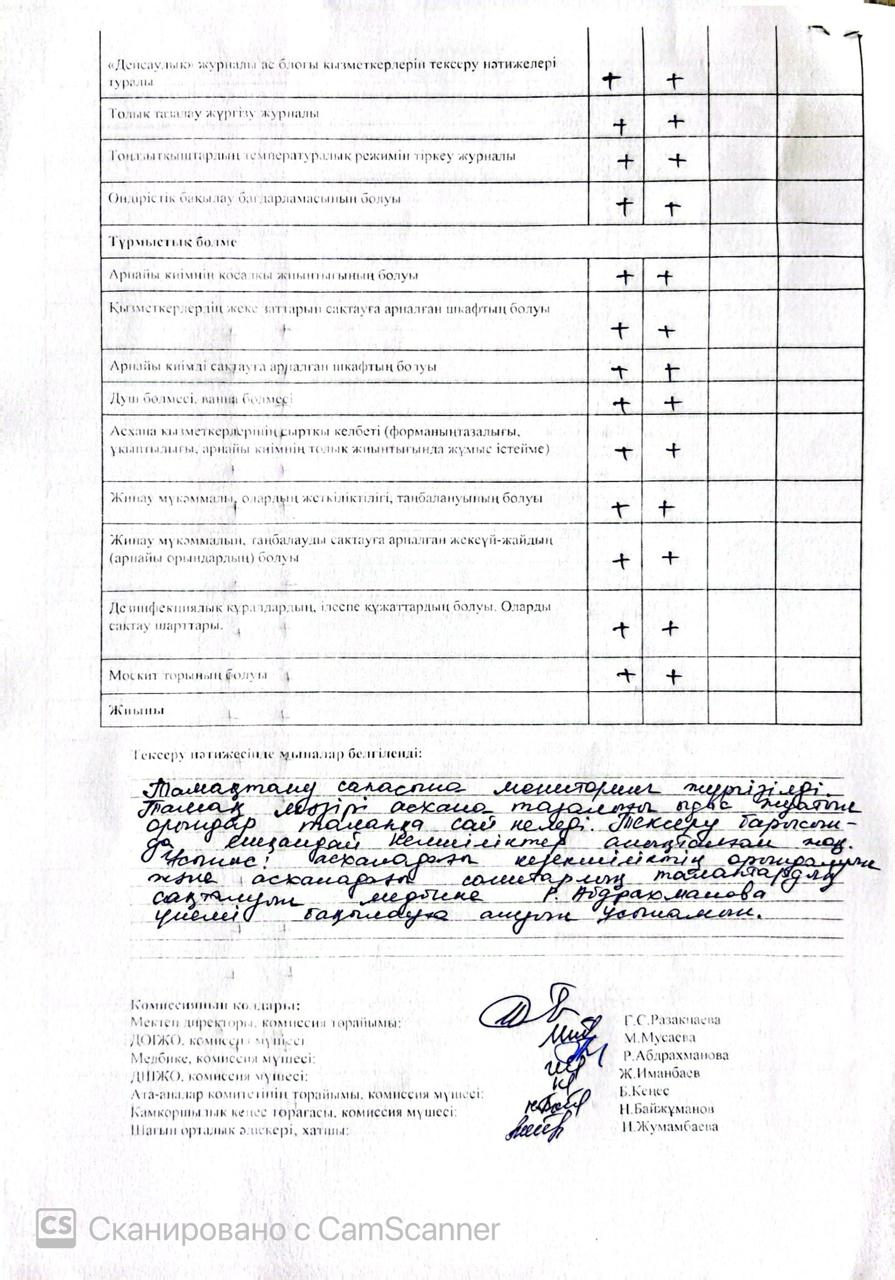 «Денсаулық» журналы ас блогы қызметкерлерін тексеру нәтижелері
туралы + +
Толық тазалау жүргізу журналы + +
Тоңазытқыштардың температуралық режимін тіркеу журналы + +
Өндірістік бақылау бағдарламасының болуы + +
Тұрмыстық бөлме
Арнайы киімнің қосалқы жиынтығының болуы + +
Қызметкерлердің жеке заттарын сақтауға арналған шкафтың болуы
+ +
Арнайы киімді сақтауға арналған шкафтың болуы + +
Душ бөлмесі, ванна бөлмесі + +
Асхана қызметкерлерінің сыртқы келбеті (форманыңтазалығы,
ұқыптылығы, арнайы киімнің толық жиынтығында жұмыс істейме) + +
Жинау мүкәммалы, олардың жеткіліктілігі, таңбалануының болуы + +
Жинау мүкәммалын, таңбалауды сақтауға арналған жекеүй-жайдың
(арнайы орындардың) болуы + +
Дезинфекциялық құралдардың, ілеспе құжаттардың болуы. Оларды
сақтау шарттары. + +
Москит торының болуы + +
Жиыны
Тексеру нәтижесінде мыналар белгіленді:
Тамақтану сапасына мониторинг жүргізілді.
Тамақ мәзірі асхана тазалығы ыдыс жуатын
орындар талапқа сай келеді. Тексеру барысын-
да ешқандай кемшіліктер анықталған жоқ.
Ұсыныс! асханадағы кезекшіліктің орындалуын
және асханадағы санитарлық талаптардың
сақталуын медбике Р. Абдрахманова
үнемі бақылауға алуын ұсынамын.
Комиссияның қолдары:
Мектеп директоры, комиссия төрайымы: Г.С.Разакчаева
ДОІЖО, комиссия мүшесі М.Мусаева
Медбике, комиссия мүшесі: Р.Абдрахманова
ДШЖО, комиссия мүшесі: Ж.Иманбаев
Ата-аналар комитетінің төрайымы, комиссия мүшесі: Б.Кеңес
Қамқоршылық кеңес төрағасы, комиссия мүшесі: Н.Байжұманов
Шағын орталық әдіскері, хатшы: И.Жумамбаева
CS Сканировано с CamScanner